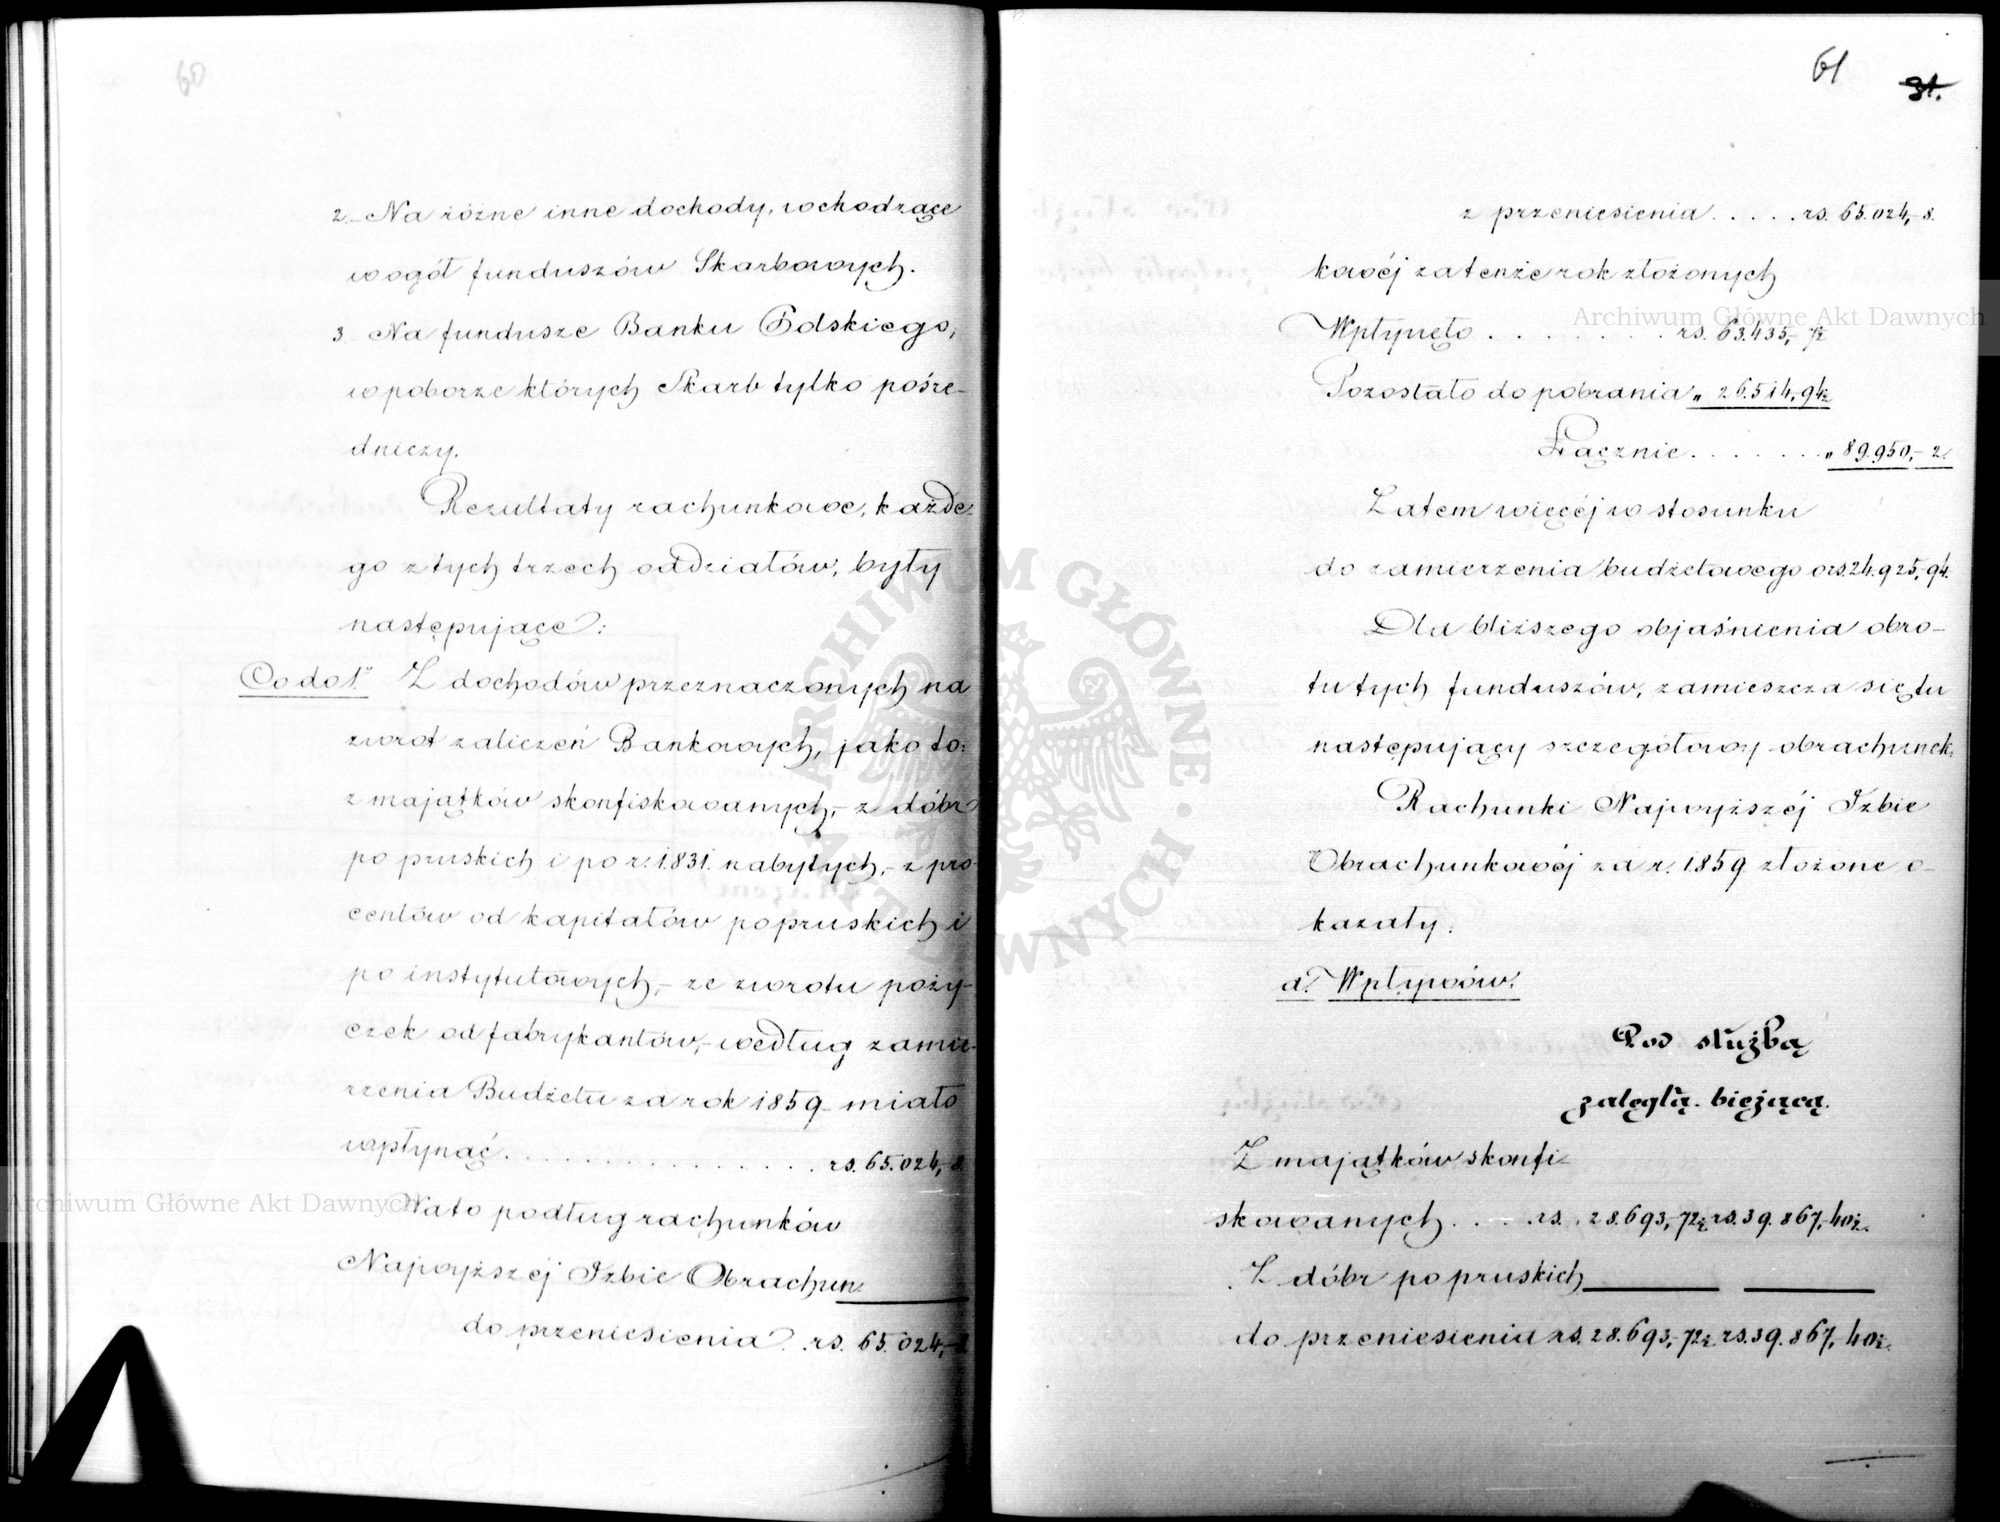 60
2.- Na różne inne dochody, wchodzące
w ogół funduszów Skarbowych.
3 Na fundusze Banku Polskiego,
w poborze których Skarb tylko pośre-
dniczy.
Rezultaty rachunkowe, każde-
go z tych trzech oddziałów, były
następujące:
Co do 1º Z dochodów przeznaczonych na
zwrot zaliczeń Bankowych, jako to:
z majątków skonfiskowanych,- z dóbr
po pruskich i po r. 1831. nabytych,- z pro-
centów od kapitałów po pruskich i
po instytutowych,- ze zwrotu poży-
czek od fabrykantów,- według zamie-
rzenia Budżetu za rok 1859 miało
wpłynąć . . . . . . . . . . . . . . . rs. 65.024,- 8.
Na to podług rachunków
Najwyższéj Izbie Obrachun-
do przeniesienia . rs. 65.024,- 8
61
31.
z przeniesienia . . . . . rs. 65.024,- 8.
kowéj za tenże rok złożonych
Wpłynęło . . . . . . . rs. 63.435,- 7½
Pozostało do pobrania „ 26.514,94½
Łącznie . . . . . . . „ 89.950,- 2.
Zatem więcéj w stosunku
do zamierzenia budżetowego o rs. 24.925,-94.
Dla bliższego objaśnienia obro-
tu tych funduszów, zamieszcza się tu
następujący szczegółowy obrachunek.
Rachunki Najwyższéj Izbie
Obrachunkowéj za r. 1859 złożone o-
kazały.
a. Wpływów.
Pod służbą
zaległą. bieżącą.
Z majątków skonfi-
skowanych . . . . rs. 28.693,-72½ rs. 39.867,-40½.
Z dóbr po pruskich
do przeniesienia rs. 28.693,-72½ rs. 39.867,40½.
Archiwum Główne Akt Dawnych
Archiwum Główne Akt Dawnych
ARCHIWUM GŁÓWNE · AKT DAWNYCH ·